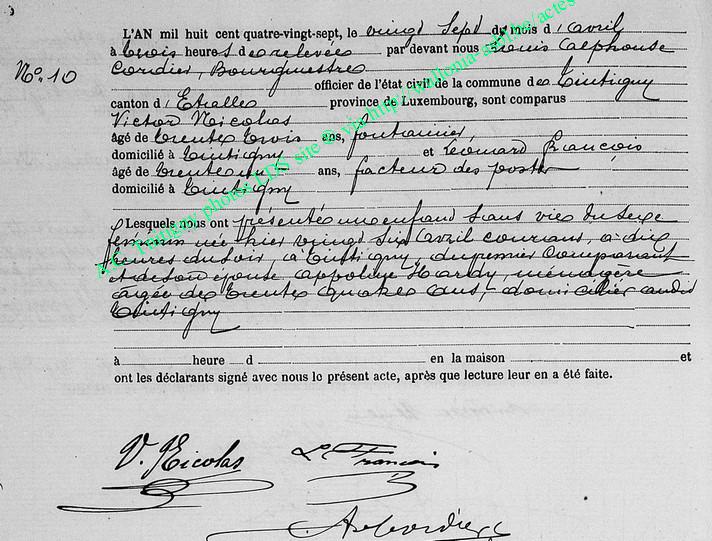 L'AN mil huit cent quatre-vingt-sept, le vingt Sept du mois d'avril
à trois heures de relevée par devant nous Louis Alphonse
No. 10
Cordier, Bourgmestre
officier de l'état civil de la commune de Tintigny
canton d'Etalle province de Luxembourg, sont comparus
Victor Nicolas
âgé de trente trois ans, fontainier,
domicilié à Tintigny et Léonard François
âgé de trente ans, facteur des postes
domicilié à Tintigny
Lesquels nous ont présenté un enfant sans vie du sexe
féminin née hier vingt six avril courant, à dix
heures du soir, à Tintigny, du premier Comparant
et de son épouse Appoline Hardy, ménagère
âgée de trente quatre ans, domicilié audit
Tintigny
à heure d en la maison et
ont les déclarants signé avec nous le présent acte, après que lecture leur en a été faite.
V. Nicolas L. François
A. Cordier
A.C. Tintigny photos LDS site @ via http://wallonia-asbl.be/actes